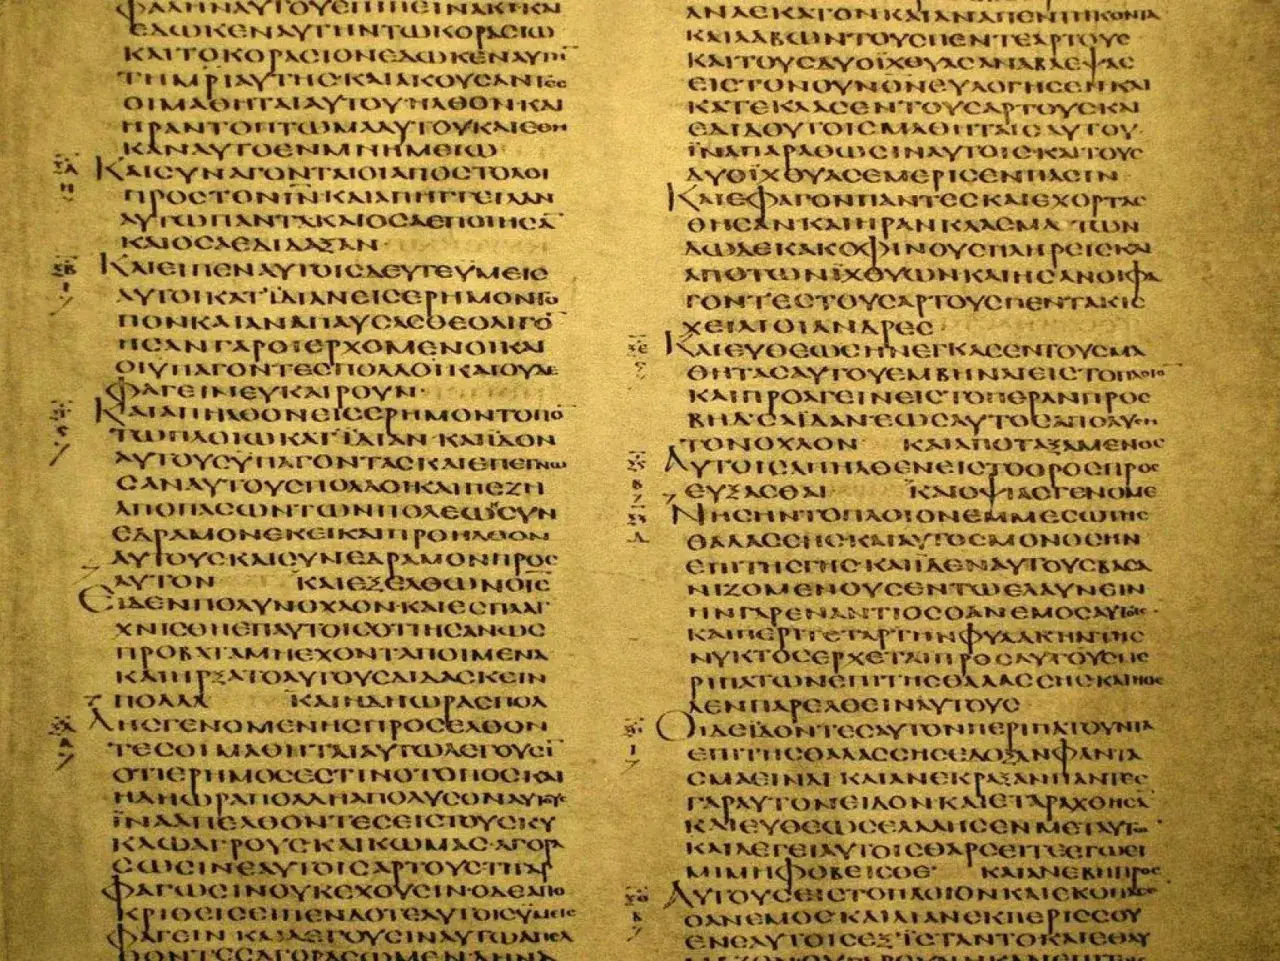 ΕΔΩΚΕΝΑΥΤΗΝΤΩΚΟΡΑΣΙΩ
ΚΑΙΤΟΚΟΡΑΣΙΟΝΕΔΩΚΕΝΑΥΤΗ
ΤΗΜΡΙΑΥΤΗΣ·ΚΑΙΑΚΟΥΣΑΝΤΕΣ
ΟΙΜΑΘΗΤΑΙΑΥΤΟΥ·ΗΛΘΟΝΚΑΙ
ΗΡΑΝΤΟΠΤΩΜΑΑΥΤΟΥΚΑΙΕΘΗ
ΚΑΝΑΥΤΟΕΝΜΝΗΜΕΙΩ
ΚΑΙΣΥΝΑΓΟΝΤΑΙΟΙΑΠΟΣΤΟΛΟΙ
ΠΡΟΣΤΟΝΙΝ̅ΚΑΙΑΠΗΓΓΕΙΛΑΝ
ΑΥΤΩΠΑΝΤΑΚΑΙΟΣΑΕΠΟΙΗΣΑ̅
ΚΑΙΟΣΑΕΔΙΔΑΞΑΝ·
ΚΑΙΕΙΠΕΝΑΥΤΟΙΣΔΕΥΤΕΫΜΕΙΣ
ΑΥΤΟΙΚΑΤΪΔΙΑΝΕΙΣΕΡΗΜΟΝΤΟ
ΠΟΝΚΑΙΑΝΑΠΑΥΣΑΣΘΕΟΛΙΓΟ̅
ΗΣΑΝΓΑΡΟΙΕΡΧΟΜΕΝΟΙΚΑΙ
ΟΙΥΠΑΓΟΝΤΕΣΠΟΛΛΟΙΚΑΙΟΥΔΕ
ΦΑΓΕΙΝΕΥΚΑΙΡΟΥΝ·
ΚΑΙΑΠΗΛΘΟΝΕΙΣΕΡΗΜΟΝΤΟΠΟ̅
ΤΩΠΛΟΙΩΚΑΤΪΔΙΑΝ·ΚΑΙΪΔΟΝ
ΑΥΤΟΥΣΫΠΑΓΟΝΤΑΣΚΑΙΕΠΕΓΝΩ
ΣΑΝΑΥΤΟΥΣΠΟΛΛΟΙ·ΚΑΙΠΕΖΗ
ΑΠΟΠΑΣΩΝΤΩΝΠΟΛΕΩΝΣΥΝ
ΕΔΡΑΜΟΝΕΚΕΙΚΑΙΠΡΟΗΛΘΟΝ
ΑΥΤΟΥΣΚΑΙΣΥΝΕΔΡΑΜΟΝΠΡΟΣ
ΑΥΤΟΝ ΚΑΙΕΞΕΛΘΩΝΟΙΣ̅
ΕΙΔΕΝΠΟΛΥΝΟΧΛΟΝ·ΚΑΙΕΣΠΛΑΓ
ΧΝΙΣΘΗΕΠΑΥΤΟΙΣΟΤΙΗΣΑΝΩΣ
ΠΡΟΒΑΤΑΜΗΕΧΟΝΤΑΠΟΙΜΕΝΑ
ΚΑΙΗΡΞΑΤΟΑΥΤΟΥΣΔΙΔΑΣΚΕΙΝ
ΠΟΛΛΑ ΚΑΙΗΔΗΩΡΑΣΠΟΛ
ΛΗΣΓΕΝΟΜΕΝΗΣΠΡΟΣΕΛΘΟΝ
ΤΕΣΟΙΜΑΘΗΤΑΙΑΥΤΩΛΕΓΟΥΣΪ
ΟΤΙΕΡΗΜΟΣΕΣΤΙΝΟΤΟΠΟΣΚΑΙ
ΗΔΗΩΡΑΠΟΛΛΗΑΠΟΛΥΣΟΝΑΥΤΟΥΣ
ΪΝΑΑΠΕΛΘΟΝΤΕΣΕΙΣΤΟΥΣΚΥ
ΚΛΩΑΓΡΟΥΣΚΑΙΚΩΜΑΣ·ΑΓΟΡΑ
ΣΩΣΙΝΕΑΥΤΟΙΣΑΡΤΟΥΣΤΙΓΑΡ
ΦΑΓΩΣΙΝΟΥΚΕΧΟΥΣΙΝ·ΟΔΕΑΠΟ
ΚΡΙΘΕΙΣΕΙΠΕΝΔΟΤΕΑΥΤΟΙΣΫΜΕΙΣ
ΦΑΓΕΙΝ ΚΑΙΛΕΓΟΥΣΙΝΑΥΤΩΑΠΕΛ
ΘΟΝΤΕΣΑΓΟΡΑΣΩΜΕΝΔΗΝΑ
ΑΝΑΕΚΑΤΟΝΚΑΙΑΝΑΠΕΝΤΗΚΟΝΤΑ
ΚΑΙΛΑΒΩΝΤΟΥΣΠΕΝΤΕΑΡΤΟΥΣ
ΚΑΙΤΟΥΣΔΥΟΪΧΘΥΑΣΑΝΑΒΛΕΨΑΣ
ΕΙΣΤΟΝΟΥΝΟ̅Ν̅ΕΥΛΟΓΗΣΕΝΚΑΙ
ΚΑΤΕΚΛΑΣΕΝΤΟΥΣΑΡΤΟΥΣΚΑΙ
ΕΔΙΔΟΥΤΟΙΣΜΑΘΗΤΑΙΣΑΥΤΟΥ·
ΪΝΑΠΑΡΑΘΩΣΙΝΑΥΤΟΙΣ·ΚΑΙΤΟΥΣ
ΔΥΟΪΧΘΥΑΣΕΜΕΡΙΣΕΝΠΑΣΙΝ
ΚΑΙΕΦΑΓΟΝΠΑΝΤΕΣΚΑΙΕΧΟΡΤΑΣ
ΘΗΣΑΝΚΑΙΗΡΑΝΚΛΑΣΜΑΤΩΝ
ΔΩΔΕΚΑΚΟΦΙΝΟΥΣΠΛΗΡΕΙΣΚΑΙ
ΑΠΟΤΩΝΪΧΘΥΩΝΚΑΙΗΣΑΝΟΙΦΑ
ΓΟΝΤΕΣΤΟΥΣΑΡΤΟΥΣΠΕΝΤΑΚΙΣ
ΧΕΙΛΙΟΙΑΝΔΡΕΣ
ΚΑΙΕΥΘΕΩΣΗΝΕΓΚΑΣΕΝΤΟΥΣΜΑ
ΘΗΤΑΣΑΥΤΟΥΕΜΒΗΝΑΙΕΙΣΤΟΠΛΟΙΟ̅
ΚΑΙΠΡΟΑΓΕΙΝΕΙΣΤΟΠΕΡΑΝΠΡΟΣ
ΒΗΔΣΑΪΔΑΝ·ΕΩΣΑΥΤΟΣΑΠΟΛΥΣΗ
ΤΟΝΟΧΛΟΝ ΚΑΙΑΠΟΤΑΞΑΜΕΝΟΣ
ΑΥΤΟΙΣΑΠΗΛΘΕΝΕΙΣΤΟΟΡΟΣΠΡΟΣ
ΕΥΞΑΣΘΑΙ· ΚΑΙΟΨΙΑΣΓΕΝΟΜΕ
ΝΗΣΗΝΤΟΠΛΟΙΟΝΕΜΜΕΣΩΤΗΣ
ΘΑΛΑΣΣΗΣ·ΚΑΙΑΥΤΟΣΜΟΝΟΣΗΝ
ΕΠΙΤΗΣΓΗΣ·ΚΑΙΪΔΕΝΑΥΤΟΥΣΒΑΣΑ
ΝΙΖΟΜΕΝΟΥΣΕΝΤΩΕΛΑΥΝΕΙΝ
ΗΝΓΑΡΕΝΑΝΤΙΟΣΟΑΝΕΜΟΣΑΥΤΟΙΣ·
ΚΑΙΠΕΡΙΤΕΤΑΡΤΗΝΦΥΛΑΚΗΝΤΗΣ
ΝΥΚΤΟΣΕΡΧΕΤΑΙΠΡΟΣΑΥΤΟΥΣΠΕ
ΡΙΠΑΤΩΝΕΠΙΤΗΣΘΑΛΑΣΣΗΣΚΑΙΗΘΕ
ΛΕΝΠΑΡΕΛΘΕΙΝΑΥΤΟΥΣ
ΟΙΔΕΪΔΟΝΤΕΣΑΥΤΟΝΠΕΡΙΠΑΤΟΥΝΤΑ
ΕΠΙΤΗΣΘΑΛΑΣΣΗΣΕΔΟΞΑΝΦΑΝΤΑ
ΣΜΑΕΙΝΑΙ ΚΑΙΑΝΕΚΡΑΞΑΝΠΑΝΤΕΣ
ΓΑΡΑΥΤΟΝΕΙΔΟΝ·ΚΑΙΕΤΑΡΑΧΘΗΣΑ̅
ΚΑΙΕΥΘΕΩΣΕΛΑΛΗΣΕΝΜΕΤΑΥΤΩ̅·
ΚΑΙΛΕΓΕΙΑΥΤΟΙΣΘΑΡΣΕΙΤΕΕΓΩΕΙ
ΜΙΜΗΦΟΒΕΙΣΘΕ· ΚΑΙΑΝΕΒΗΠΡΟΣ
ΑΥΤΟΥΣΕΙΣΤΟΠΛΟΙΟΝΚΑΙΕΚΟΠΑΣΕ
ΟΑΝΕΜΟΣ·ΚΑΙΛΙΑΝΕΚΠΕΡΙΣΣΟΥ
ΕΝΕΑΥΤΟΙΣΕΞΪΣΤΑΝΤΟΚΑΙΕΘΑΥ